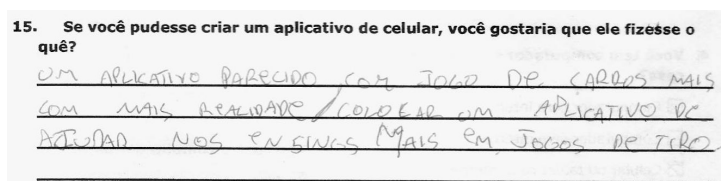 15. Se você pudesse criar um aplicativo de celular, você gostaria que ele fizesse o
quê?
UM APLICATIVO PARECIDO COM JOGO DE CARROS MAIS
COM MAIS REALIDADE / COLOCAR UM APLICATIVO DE
AJUDAR NOS ENSINOS MAIS EM JOGOS DE TIRO